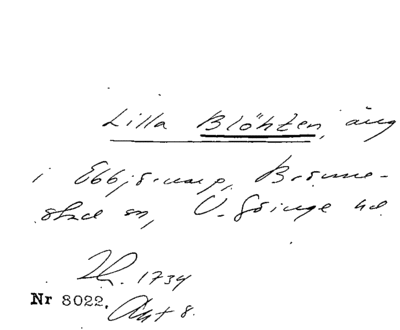 Lilla Blöhten, äng
i Ebbjörnarp, Brönne-
stad sn, V. Göinge hd
Lh. 1734
Nr 8022. Akt 8.